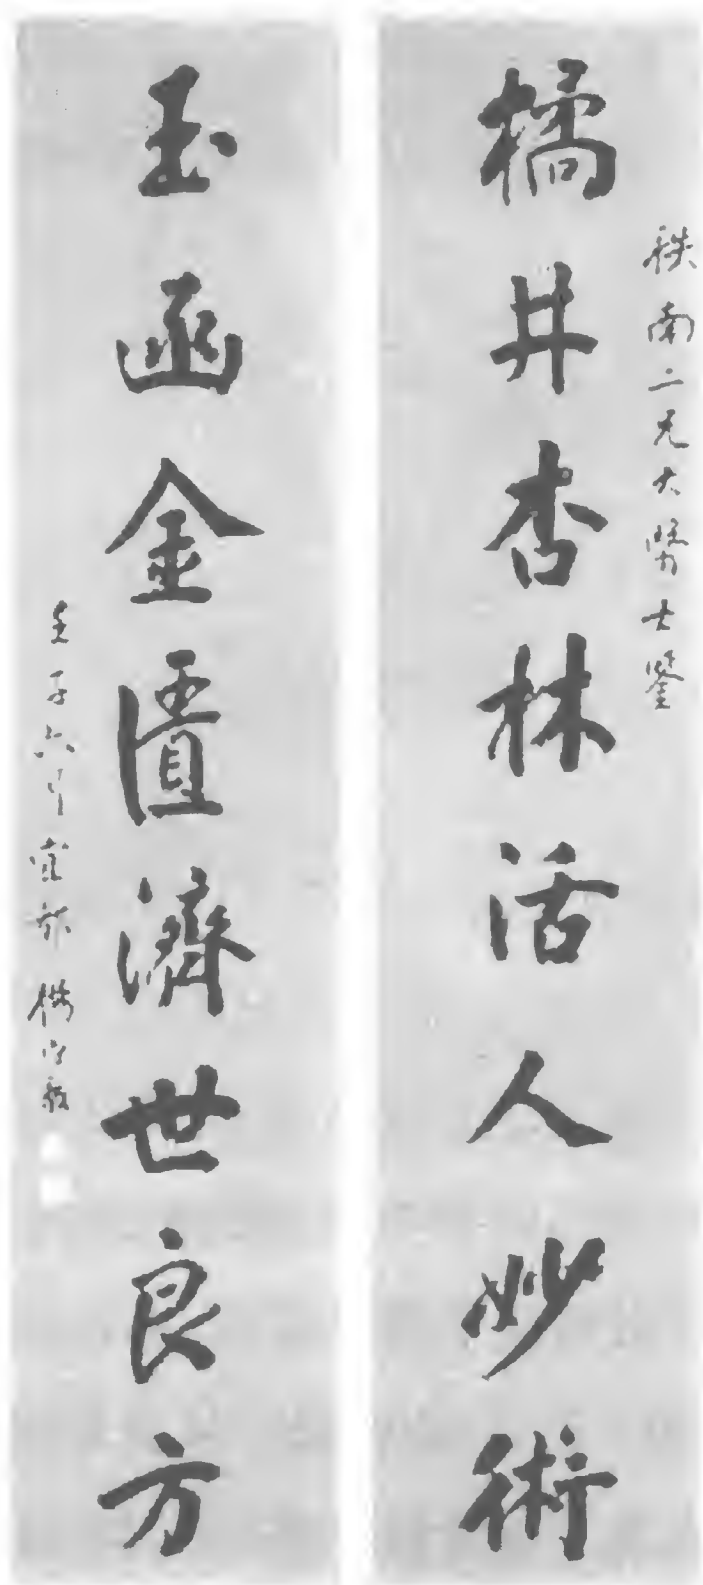 橘井杏林活人妙術
秩南二兄大醫士鑒
玉函金匱濟世良方
壬子六月宜都楊守敬